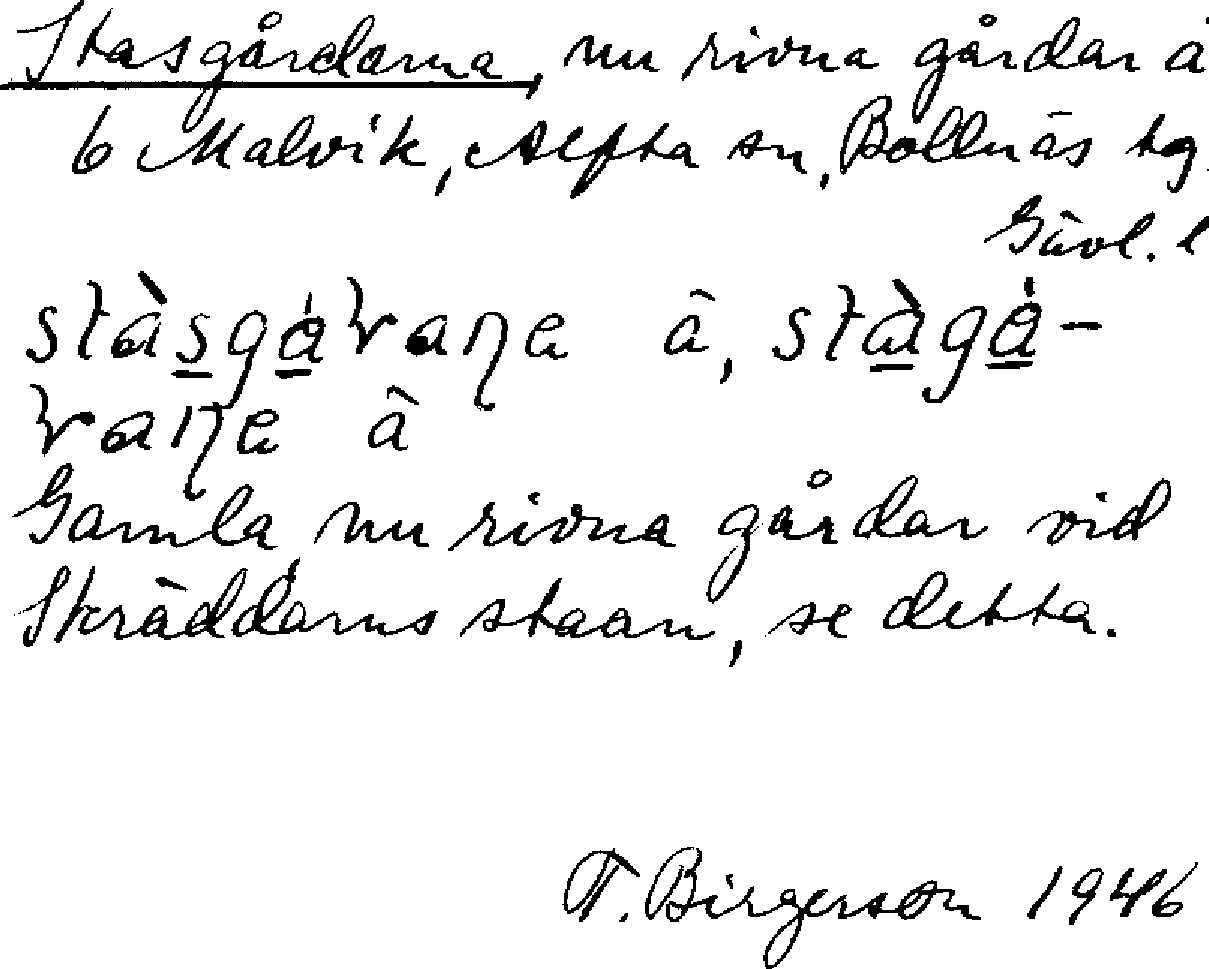 Stasgårdarna, nu rivna gårdar å
6 Malvik, Alfta sn, Bollnäs tg.
Gävl. l
stàsgávaŋa â, stàgá-
vaŋa â
Gamla, nu rivna gårdar vid
Skräddarns staan, se detta.
T. Birgerson 1946